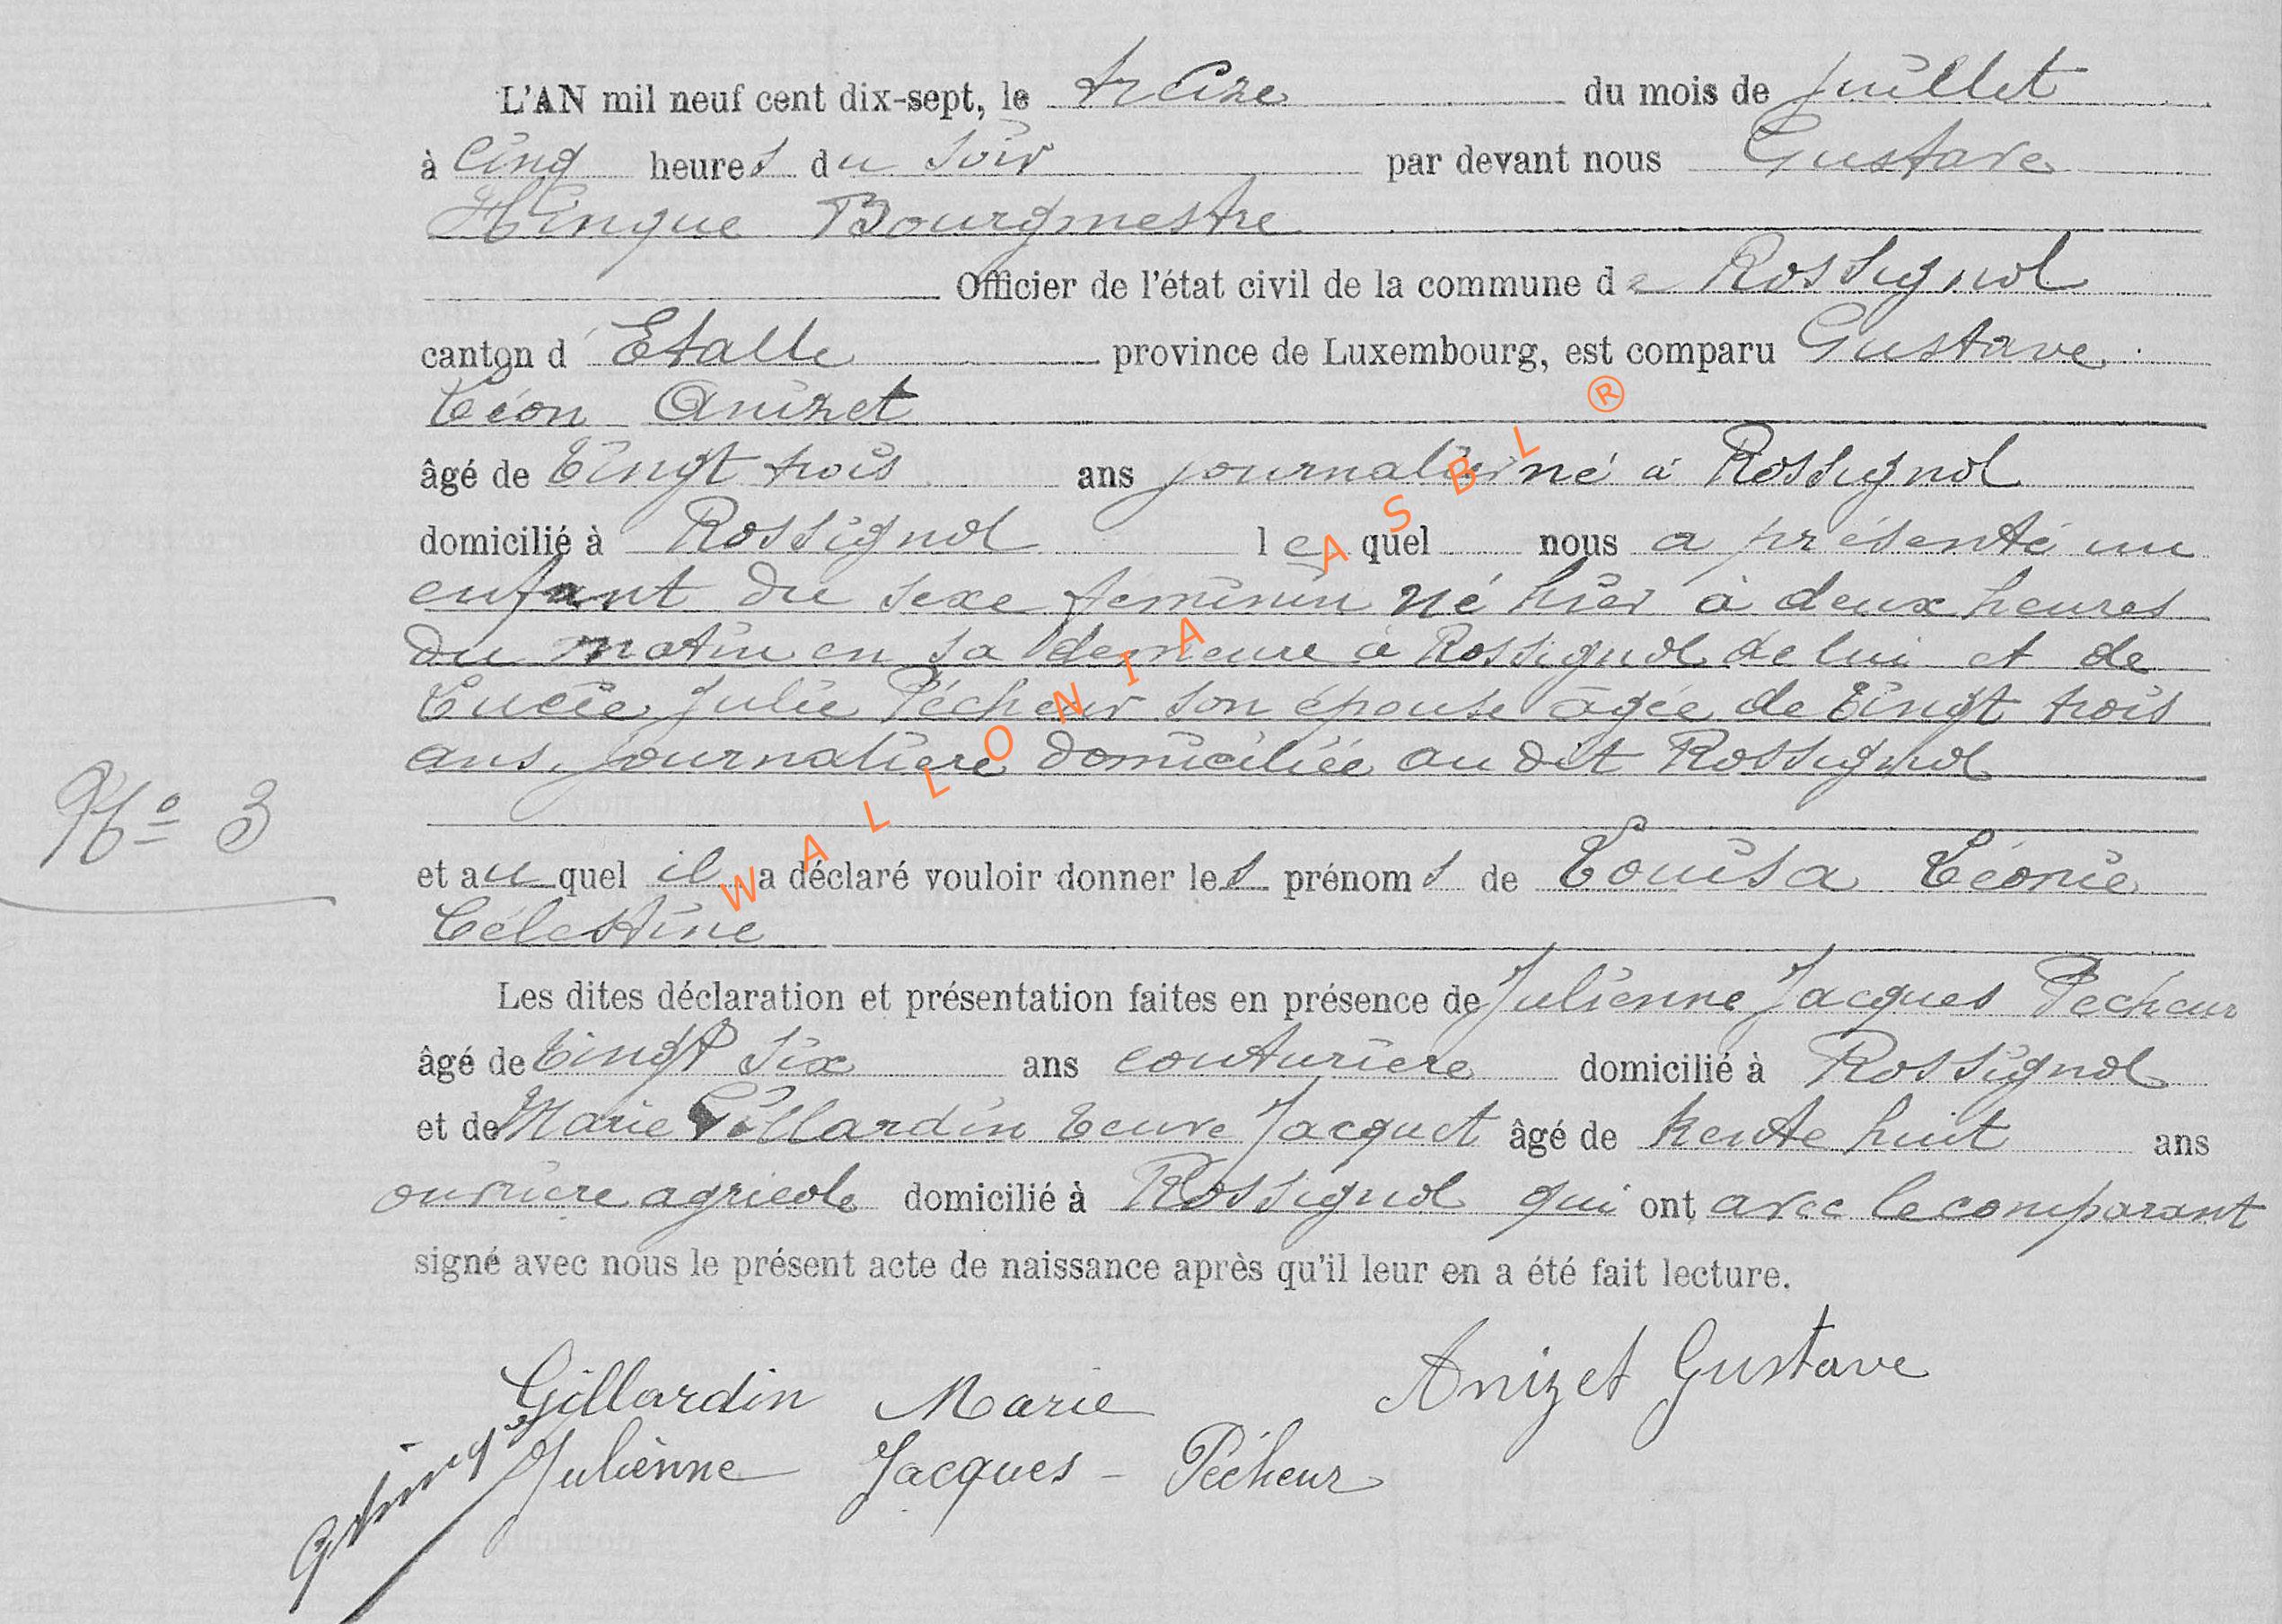 L'AN mil neuf cent dix-sept, le treize du mois de juillet
à cinq heures du soir par devant nous Gustave
Hinque Bourgmestre
Officier de l'état civil de la commune de Rossignol
canton d'Etalle province de Luxembourg, est comparu Gustave
Léon Anizet
âgé de vingt trois ans journalier né à Rossignol
domicilié à Rossignol lequel nous a présenté un
enfant du sexe féminin né hier à deux heures
du matin en sa demeure à Rossignol de lui et de
Lucie Julie Pécheur son épouse âgée de vingt trois
ans, journalière domiciliée au dit Rossignol
N° 3
et auquel il a déclaré vouloir donner les prénoms de Louisa Léonie
Célestine
Les dites déclaration et présentation faites en présence de Julienne Jacques Pécheur
âgé de vingt six ans couturière domicilié à Rossignol
et de Marie Gillardin veuve Jacquet âgé de trente huit ans
ouvrière agricole domicilié à Rossignol qui ont avec le comparant
signé avec nous le présent acte de naissance après qu'il leur en a été fait lecture.
Gillardin Marie Anizet Gustave
Julienne Jacques - Pécheur
WALLONIA ASBL ®